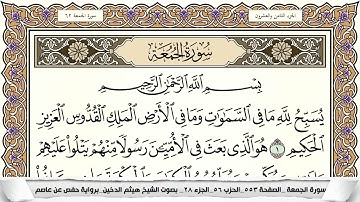 الجزء الثامن والعشرون
سورة الجمعة ٦٢
سُورَةُ الجُمُعَةِ
بِسْمِ ٱللَّهِ ٱلرَّحْمَٰنِ ٱلرَّحِيمِ
يُسَبِّحُ لِلَّهِ مَا فِي ٱلسَّمَٰوَٰتِ وَمَا فِي ٱلْأَرْضِ ٱلْمَلِكِ ٱلْقُدُّوسِ ٱلْعَزِيزِ
ٱلْحَكِيمِ ١ هُوَ ٱلَّذِي بَعَثَ فِي ٱلْأُمِّيِّـۧنَ رَسُولًا مِّنْهُمْ يَتْلُواْ عَلَيْهِمْ
سورة الجمعة _الصفحة ٥٥٣_ الحزب ٥٦_الجزء ٢٨_ بصوت الشيخ هيثم الدخين_ برواية حفص عن عاصم